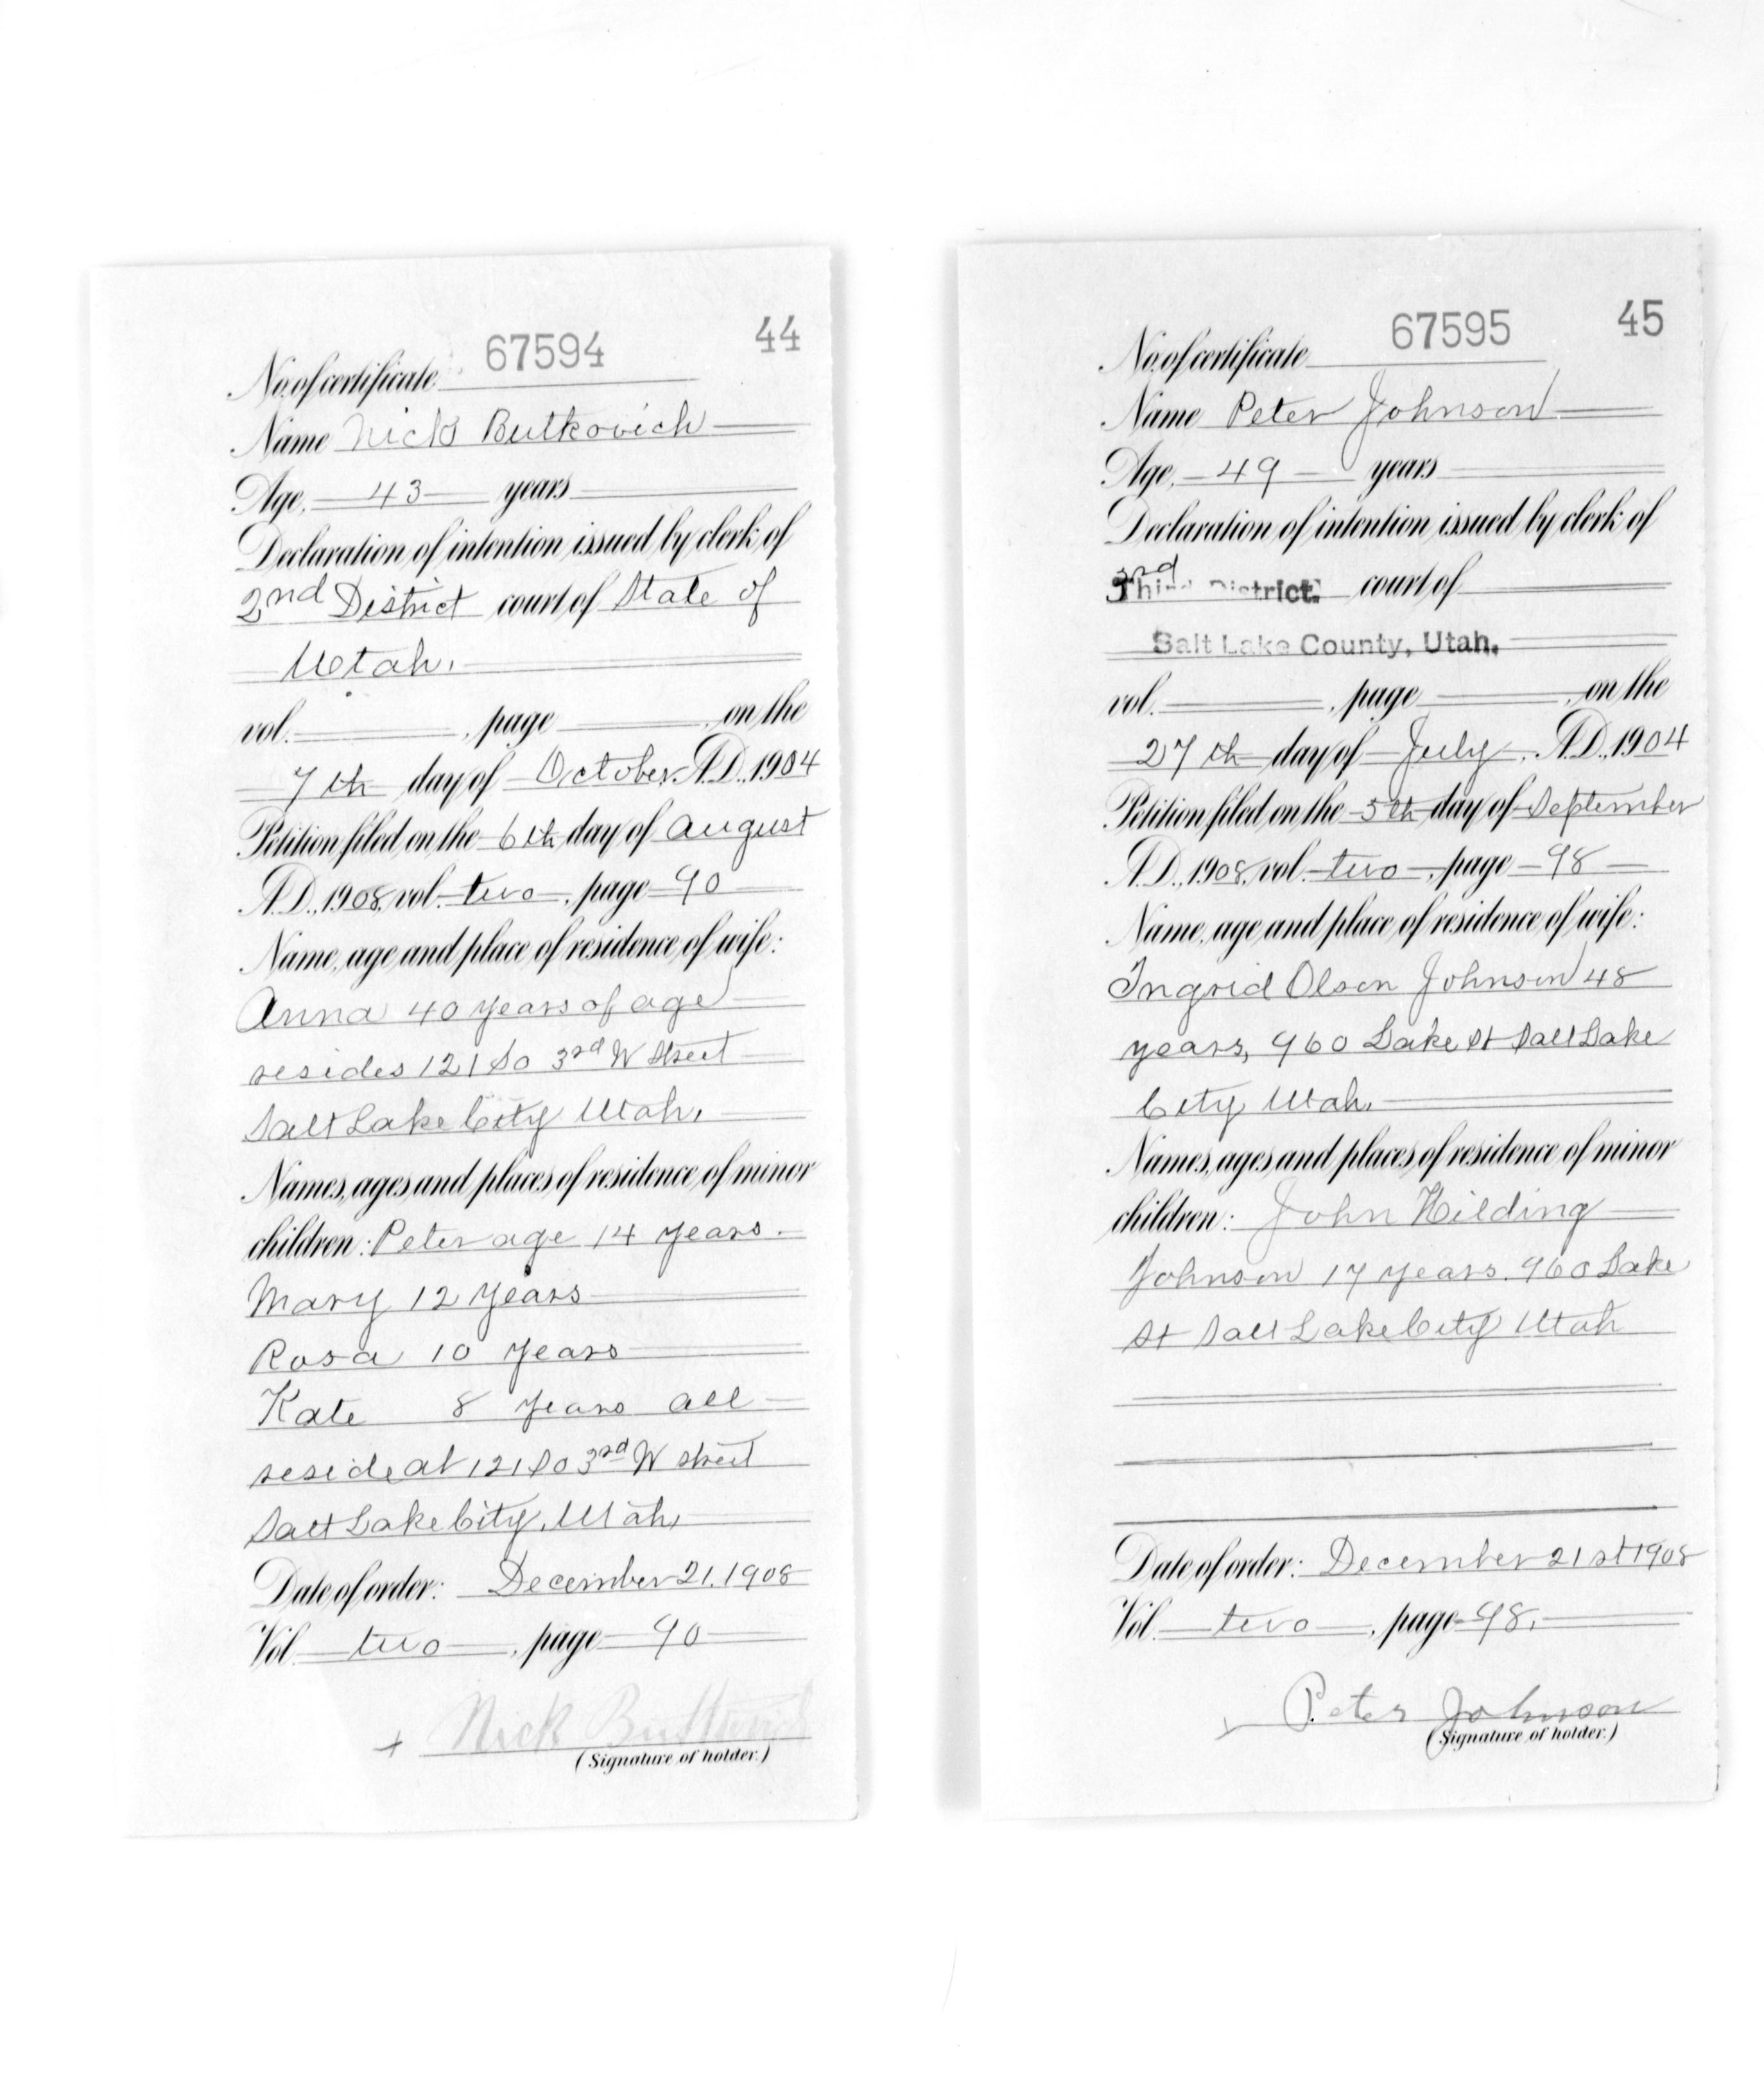 67594 44
No. of certificate
Name Nick Butkovich
Age, 43 years
Declaration of intention issued by clerk of
2nd District court of State of
Utah.
vol. , page , on the
7th day of October A.D., 1904
Petition filed on the 6th day of August
A.D., 1908, vol. two, page 90
Name, age and place of residence of wife:
Anna 40 years of age
resides 121 So 3rd W Street
Salt Lake City Utah.
Names, ages and places of residence of minor
children: Peter age 14 years.
Mary 12 years
Rosa 10 years
Kate 8 years all
reside at 121 So 3rd W street
Salt Lake City, Utah,
Date of order: December 21, 1908
Vol. two, page 90
+ Nick
(Signature of holder.)
67595 45
No. of certificate
Name Peter Johnson
Age, 49 years
Declaration of intention issued by clerk of
3rd
Third District. court of
Salt Lake County, Utah.
vol. , page , on the
27th day of July, A.D., 1904
Petition filed on the 5th day of September
A.D., 1908, vol. two, page 98
Name, age and place of residence of wife:
Ingrid Olson Johnson 48
years, 960 Lake St Salt Lake
City Utah.
Names, ages and places of residence of minor
children: John Hilding
Johnson 17 years. 960 Lake
St Salt Lake City Utah
Date of order: December 21st 1908
Vol. two, page 98.
Peter Johnson
(Signature of holder.)